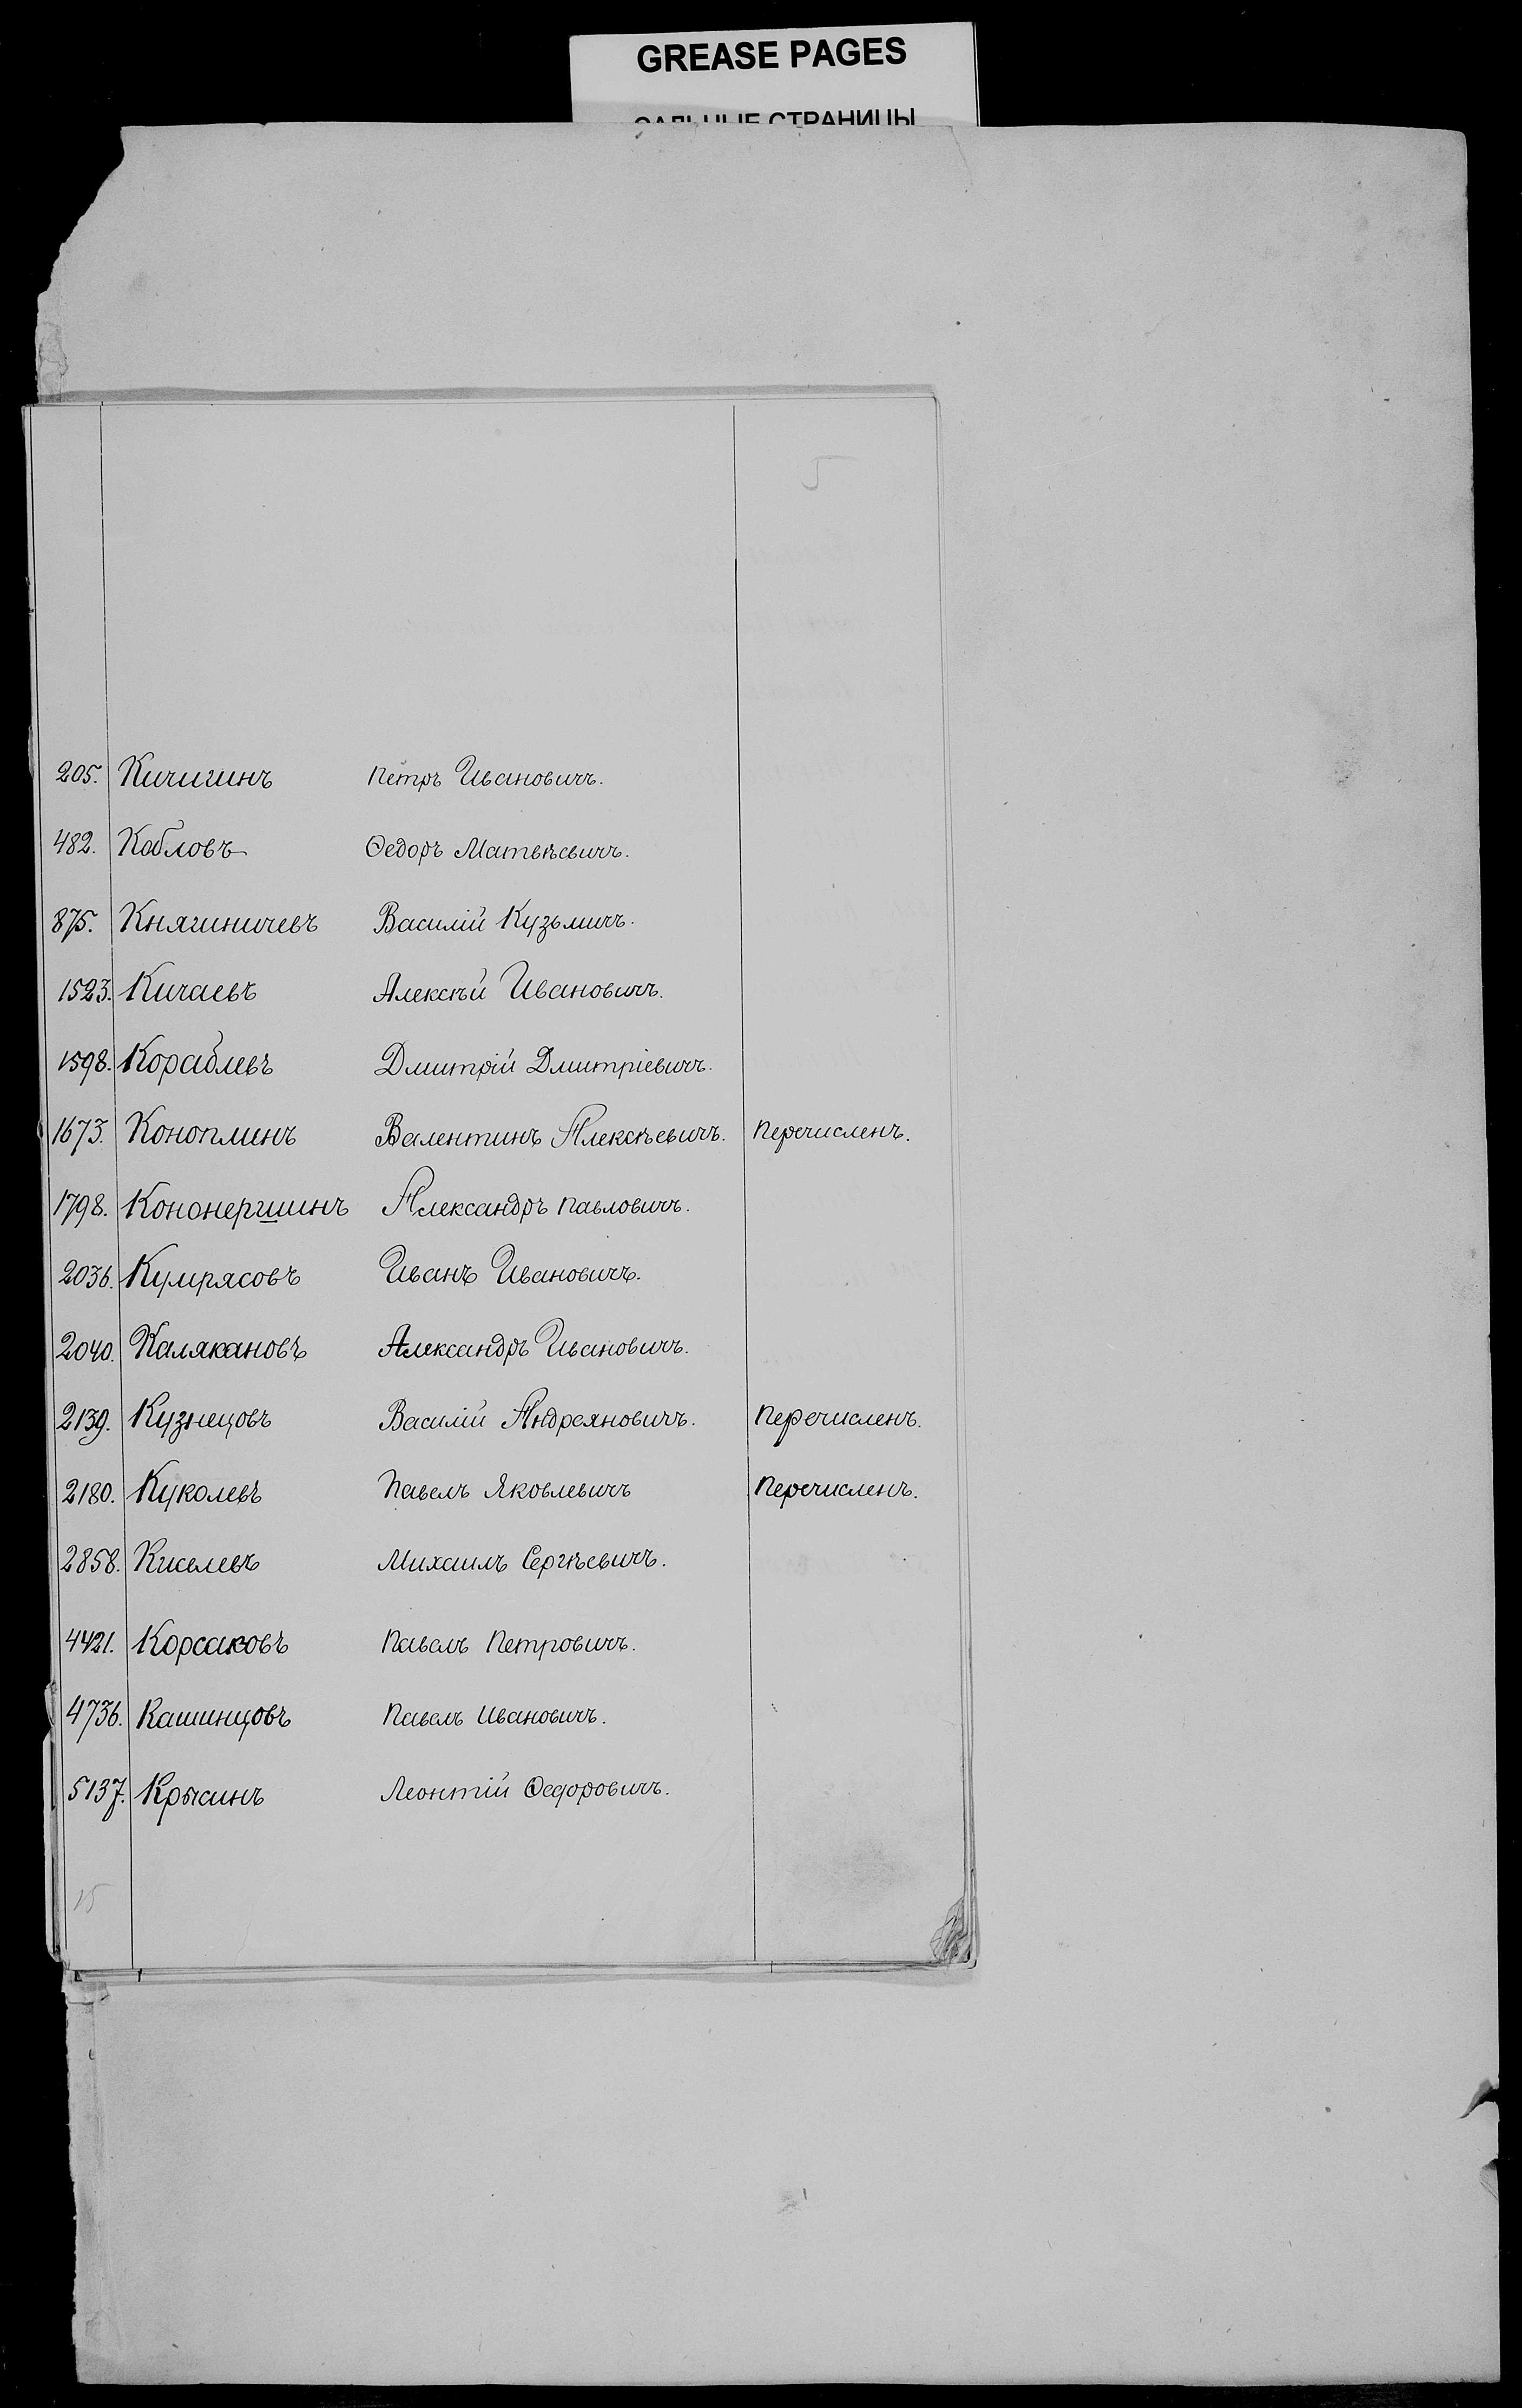 GREASE PAGES
САЛЬНЫЕ СТРАНИЦЫ
205. Кичигинъ Петръ Ивановичъ.
482. Кабловъ Ѳедоръ Матвѣевичъ.
875. Княгиничевъ Василій Кузьмичъ.
1523. Кичаевъ Алексѣй Ивановичъ.
1598. Кораблевъ Дмитрій Дмитріевичъ.
1673. Коноплинъ Валентинъ Алексѣевичъ. Перечисленъ.
1798. Кононершинъ Александръ Павловичъ.
2036. Кумрясовъ Иванъ Ивановичъ.
2040. Каляканов Александръ Ивановичъ.
2139. Кузнецовъ Василій Андреяновичъ. Перечисленъ.
2180. Куколевъ Павелъ Яковлевичъ Перечисленъ.
2858. Киселевъ Михаилъ Сергѣевичъ.
4421. Корсаковъ Павелъ Петровичъ.
4736. Кашинцовъ Павелъ Ивановичъ.
5137. Крысинъ Леонтій Ѳедоровичъ.
15